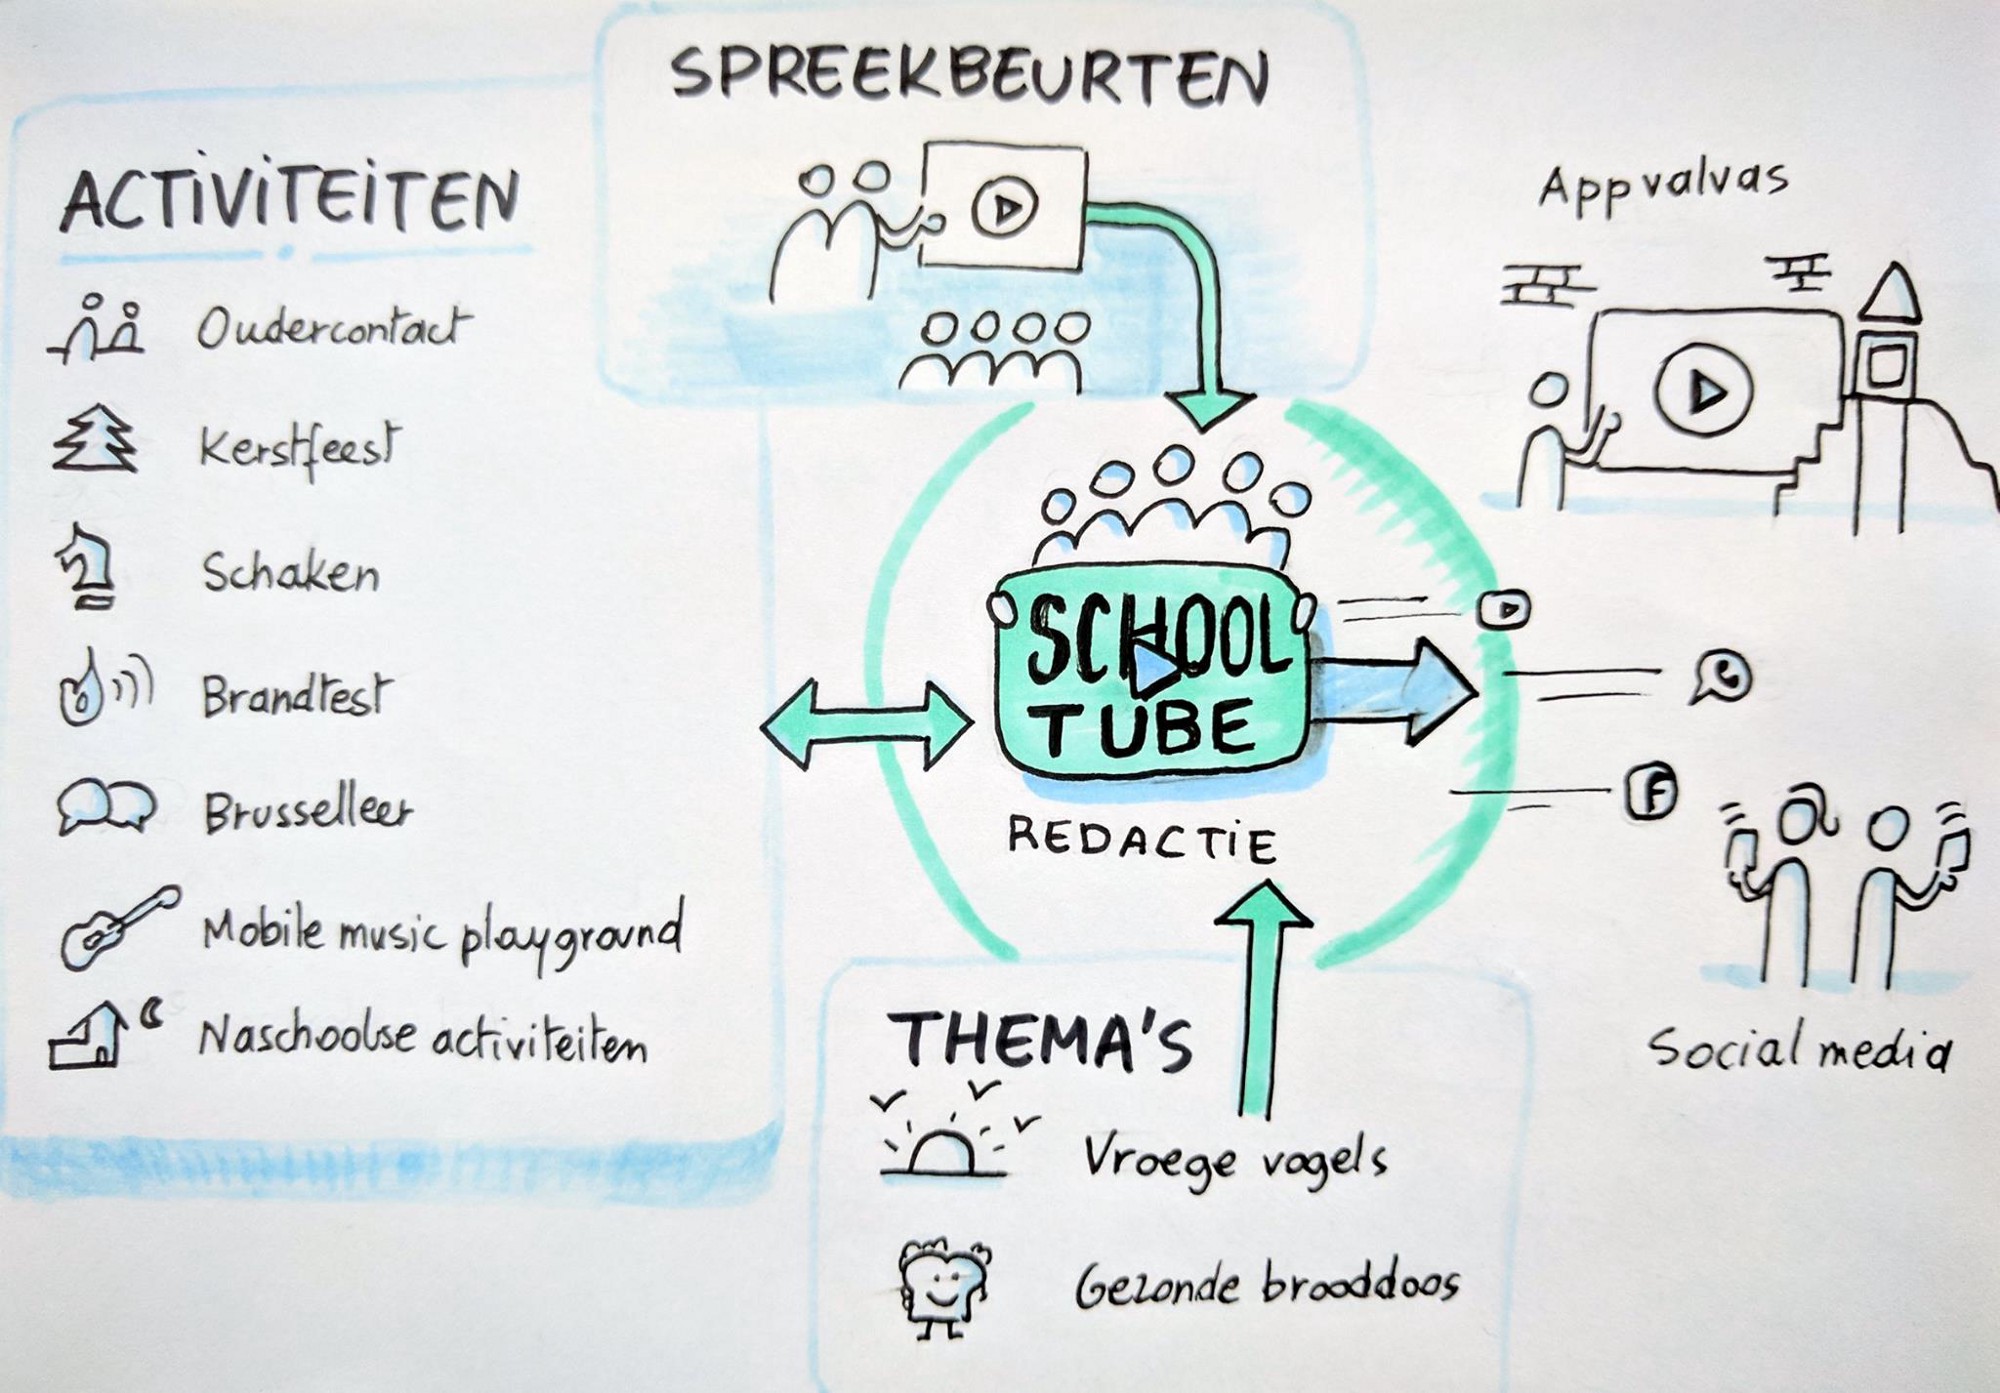 SPREEKBEURTEN
ACTIVITEITEN
Oudercontact
Kerstfeest
Schaken
Brandtest
Brusselleer
Mobile music playground
Naschoolse activiteiten
SCHOOL
TUBE
REDACTIE
THEMA'S
Vroege vogels
Gezonde brooddoos
Appvalvas
F
Social media